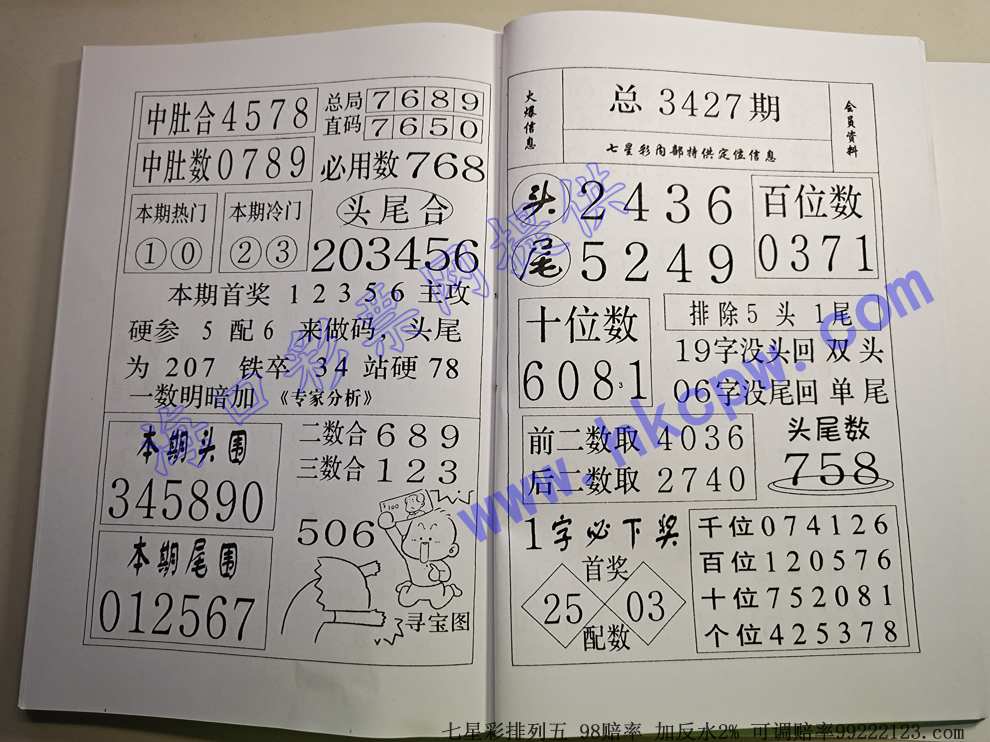 中肚合4578
总局7689
直码7650
中肚数0789
必用数768
本期热门
①⓪
本期冷门
②③
头尾合
203456
本期首奖 1 2 3 5 6 主攻
硬参 5 配 6 来做码，头尾
为 207 铁卒 34 站硬 78
一数明暗加 《专家分析》
本期头围
345890
本期尾围
012567
二数合 6 8 9
三数合 1 2 3
506
$100
寻宝图
火爆信息
总 3427期
七星彩内部特供定位信息
会员资料
头 2436
尾 5249
百位数
0371
十位数
6081
3
排除 5 头 1 尾
19字没头回 双 头
06字没尾回 单 尾
前二数取 4036
后二数取 2740
头尾数
758
1字必下奖
首奖
25 03
配数
千位074126
百位120576
十位752081
个位425378
海口彩票网提供
www.hkcpw.com
七星彩排列五 98赔率 加反水2% 可调赔率99222123.com